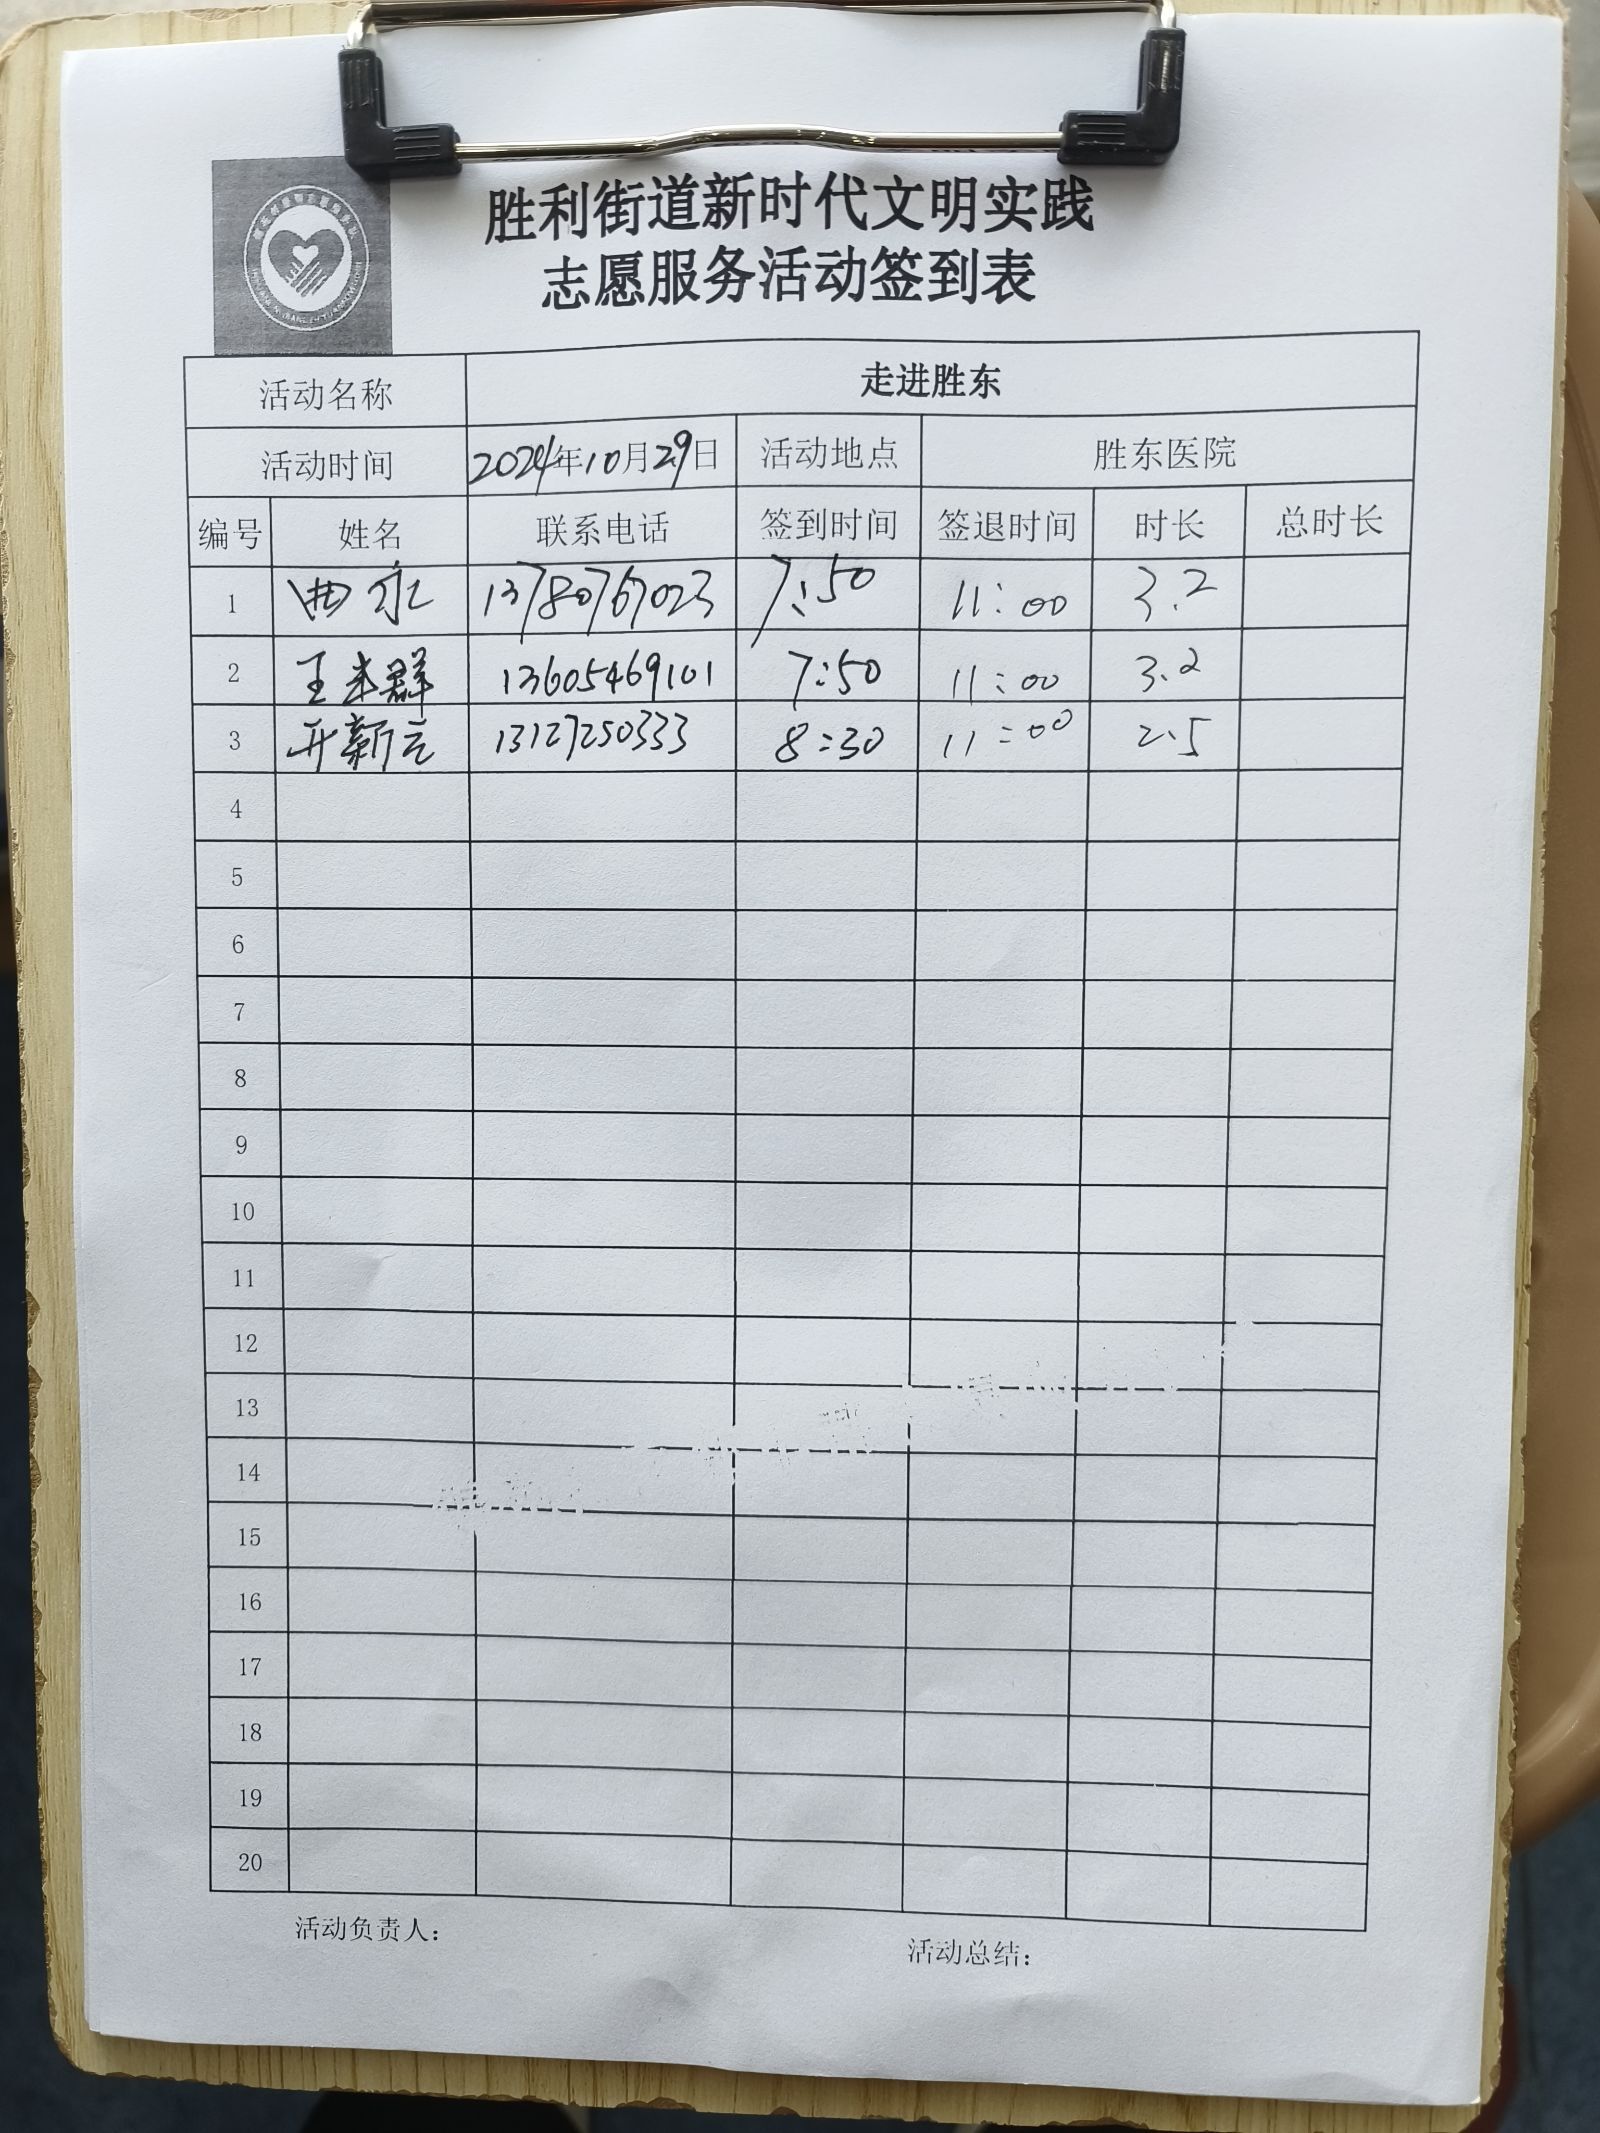 胜利街道新时代文明实践
志愿服务活动签到表
活动名称 走进胜东
活动时间 2024年10月29日 活动地点 胜东医院
编号 姓名 联系电话 签到时间 签退时间 时长 总时长
1 曲 13780767023 7:50 11:00 3.2
2 王 群 13605469101 7:50 11:00 3.2
3 新 13127250333 8:30 11:00 2.5
4
5
6
7
8
9
10
11
12
13
14
15
16
17
18
19
20
活动负责人: 活动总结: